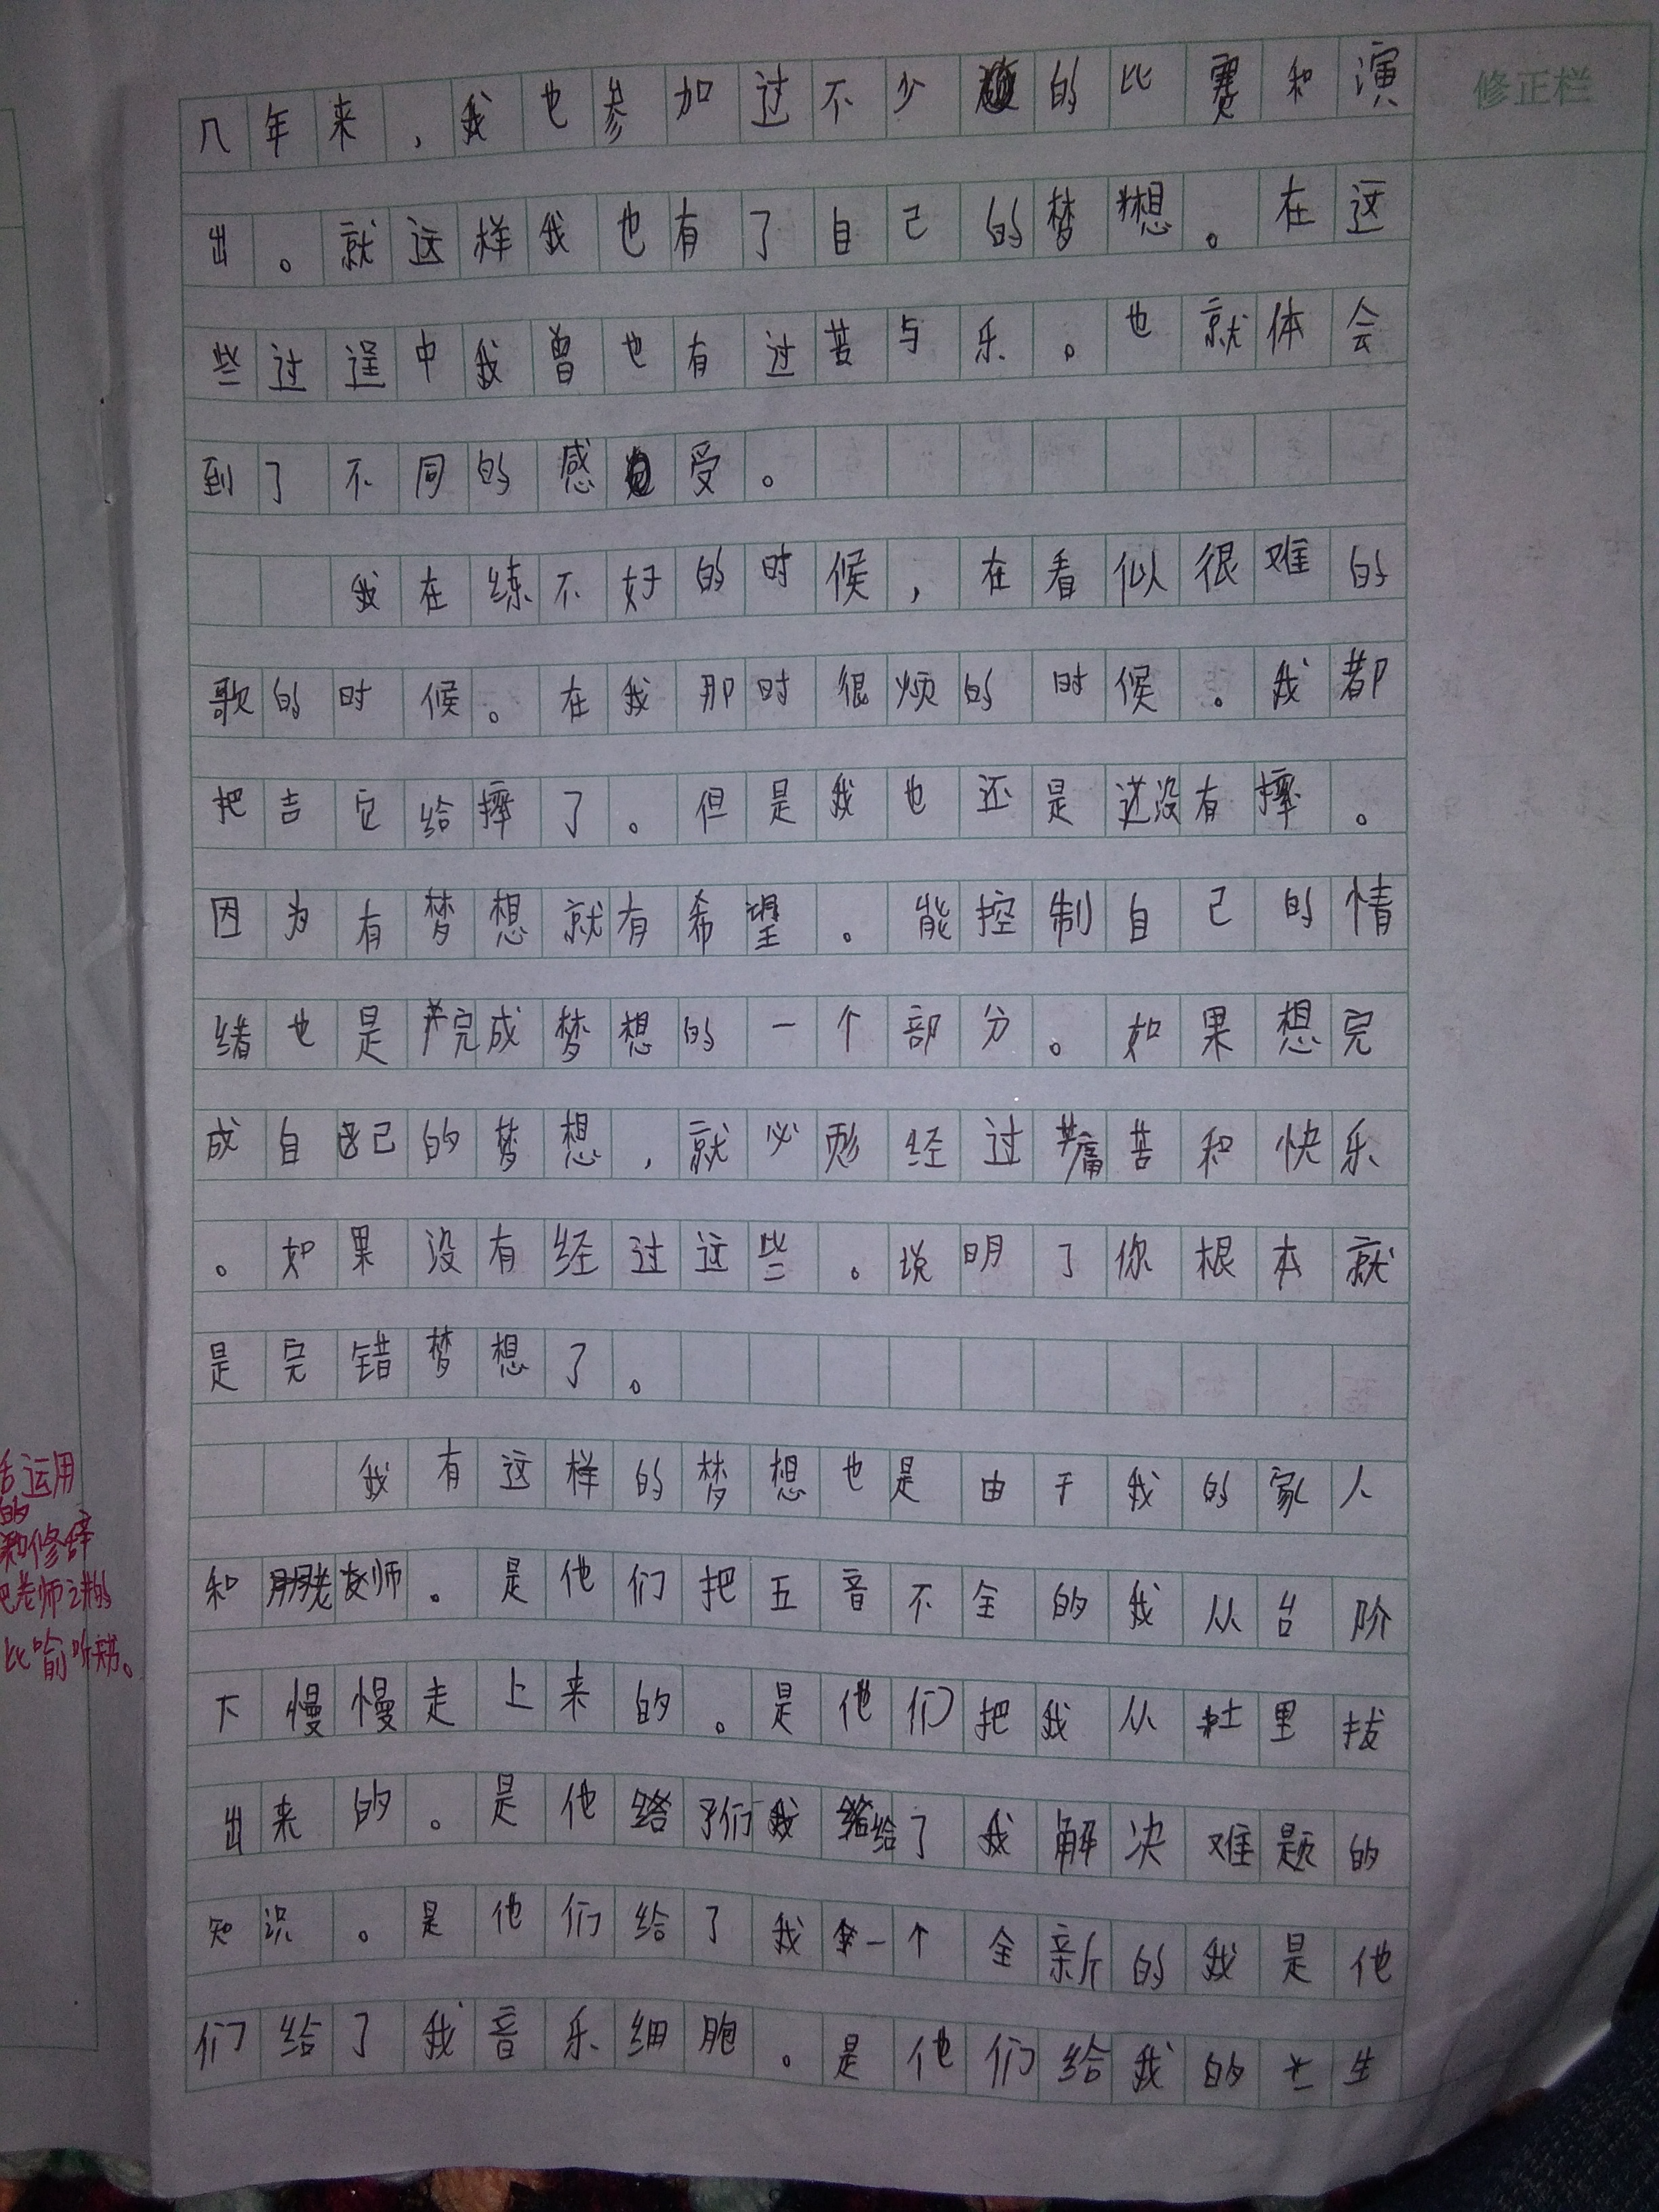 修正栏
几年来,我也参加过不少的比赛和演
出。就这样我也有了自己的梦想。在这
些过逞中我曾也有过苦与乐。也就体会
到了不同的感受。
我在练不好的时候,在看似很难的
歌的时候。在我那时很烦的时候。我都
把吉它给摔了。但是我也还是没有摔。
因为有梦想就有希望。能控制自己的情
绪也是完成梦想的一个部分。如果想完
成自己的梦想,就必须经过痛苦和快乐
。如果没有经过这些。说明了你根本就
是完错梦想了。
我有这样的梦想也是由于我的家人
和老师。是他们把五音不全的我从台阶
下慢慢走上来的。是他们把我从土里拔
出来的。是他们给了我解决难题的
知识。是他们给了我一个全新的我是他
们给了我音乐细胞。是他们给我的生
运用
的
和修辞
老师讲的
比喻